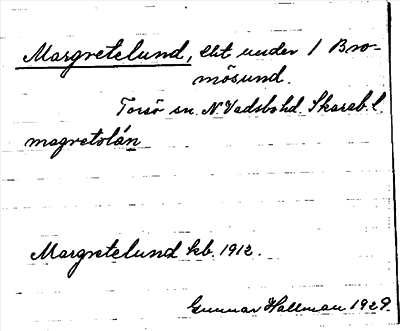 Margretelund, lht under 1 Bro-
mösund.
Torsö sn. N. Vadsbo hd. Skarab. l.
magretolán
Margretelund kb. 1912.
Gunnar Hallman 1929.